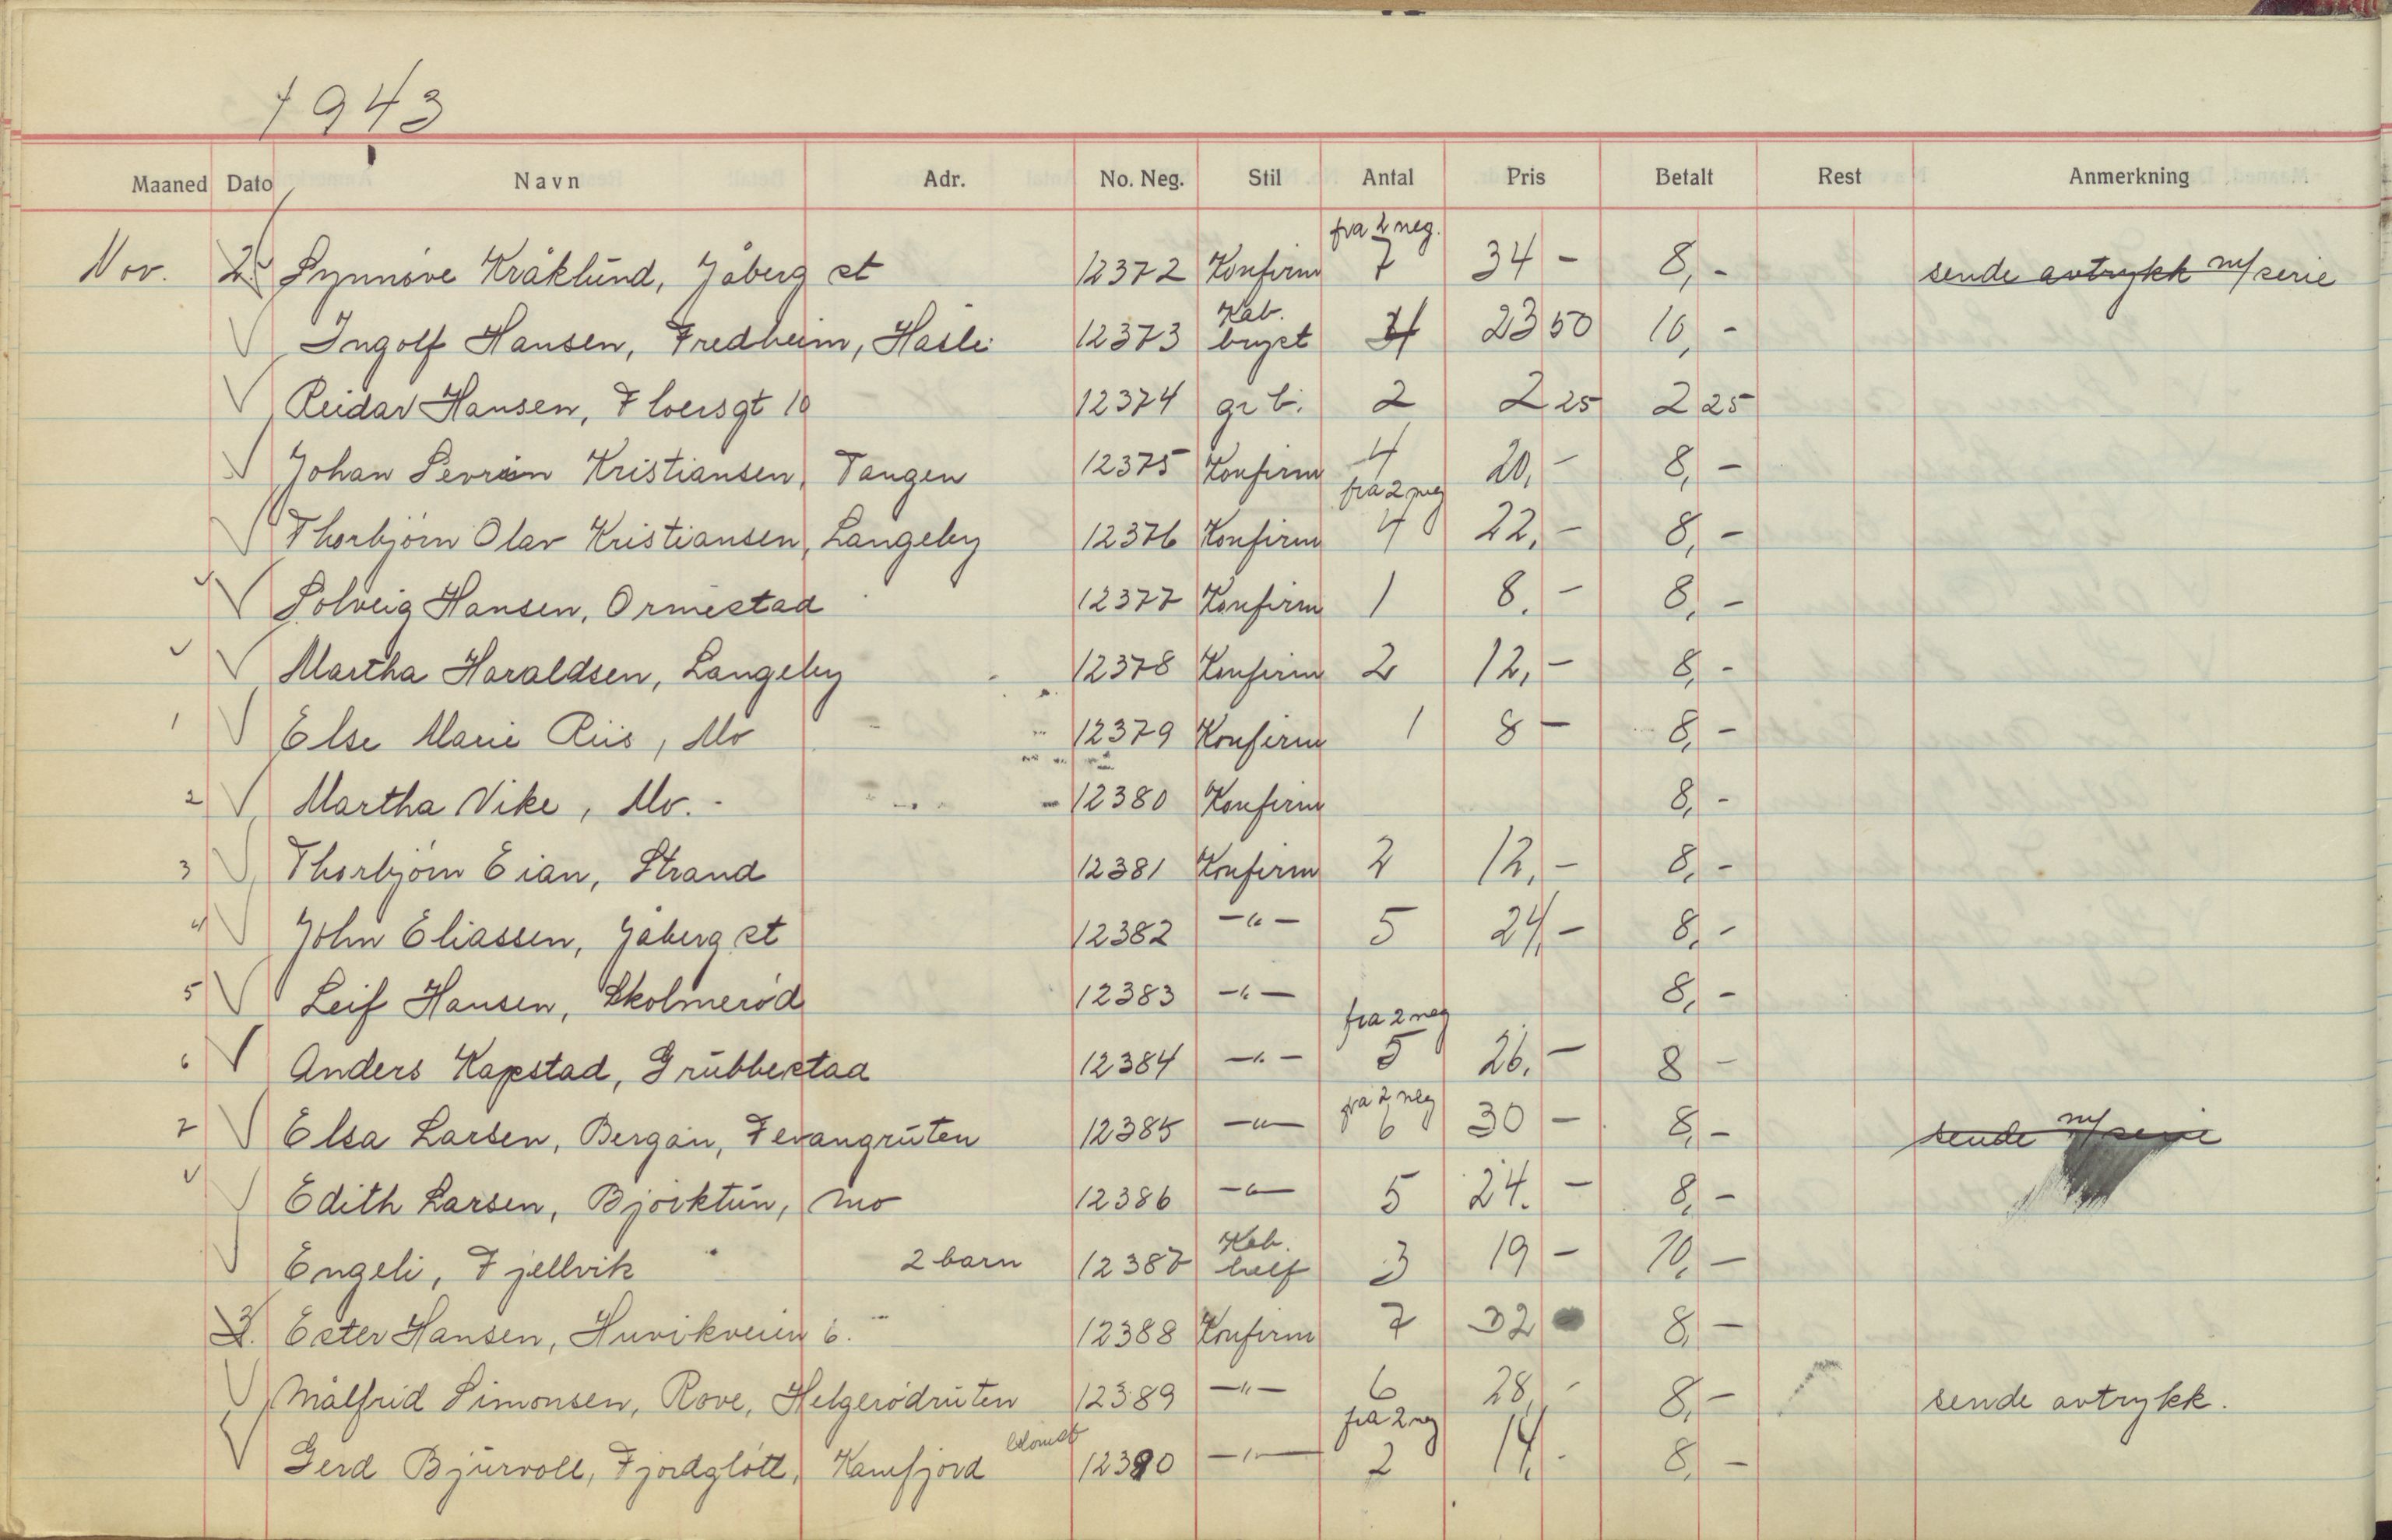 1943
Maaned Dato Navn Adr. No. Neg. Stil Antal Pris Betalt Rest Anmerkning
fra 2 neg.
Nov. 2. Synnøve Kråklund, Jåberg st 12372 Konfirm 7 34 - 8,- sende avtrykk m/serie
Kab.
Ingolf Hansen, Fredheim, Hasle 12373 bryst 4 23 50 10,-
Reidar Hansen, Floersgt 10 12374 gr b. 2 2 25 2 25
Johan Sevrin Kristiansen, Tangen 12375 Konfirm 4 20,- 8,-
fra 2 neg
Thorbjørn Olav Kristiansen, Langeby 12376 Konfirm 4 22,- 8,-
Solveig Hansen, Ormestad 12377 Konfirm 1 8,- 8,-
Martha Haraldsen, Langeby 12378 Konfirm 2 12,- 8,-
1 Else Marie Riis, Mo 12379 Konfirm 1 8 - 8,-
2 Martha Vike, Mo. 12380 Konfirm 8,-
3 Thorbjørn Eian, Strand 12381 Konfirm 2 12,- 8,-
4 John Eliassen, Jåberg st 12382 -"- 5 24,- 8,-
5 Leif Hansen, Skolmerød 12383 -"- 8,-
fra 2 neg
6 Anders Kapstad, Grubbestad 12384 -"- 5 26,- 8 -
fra 2 neg
7 Elsa Larsen, Bergan, Fevangruten 12385 -"- 6 30 - 8,- sende m/serie
Edith Larsen, Bjørktun, Mo 12386 -"- 5 24.- 8,-
Kab.
Engeli, Fjellvik 2 barn 12387 half 3 19 - 10,-
3. Ester Hansen, Huvikveien 6. 12388 Konfirm 7 32 8,-
Målfrid Simonsen, Rove, Helgerødruten 12389 -"- 6 28,- 8,- sende avtrykk.
fra 2 neg
Gerd Bjurvoll, Fjordgløtt, Kamfjord blomst 12390 -"- 2 14,- 8,-